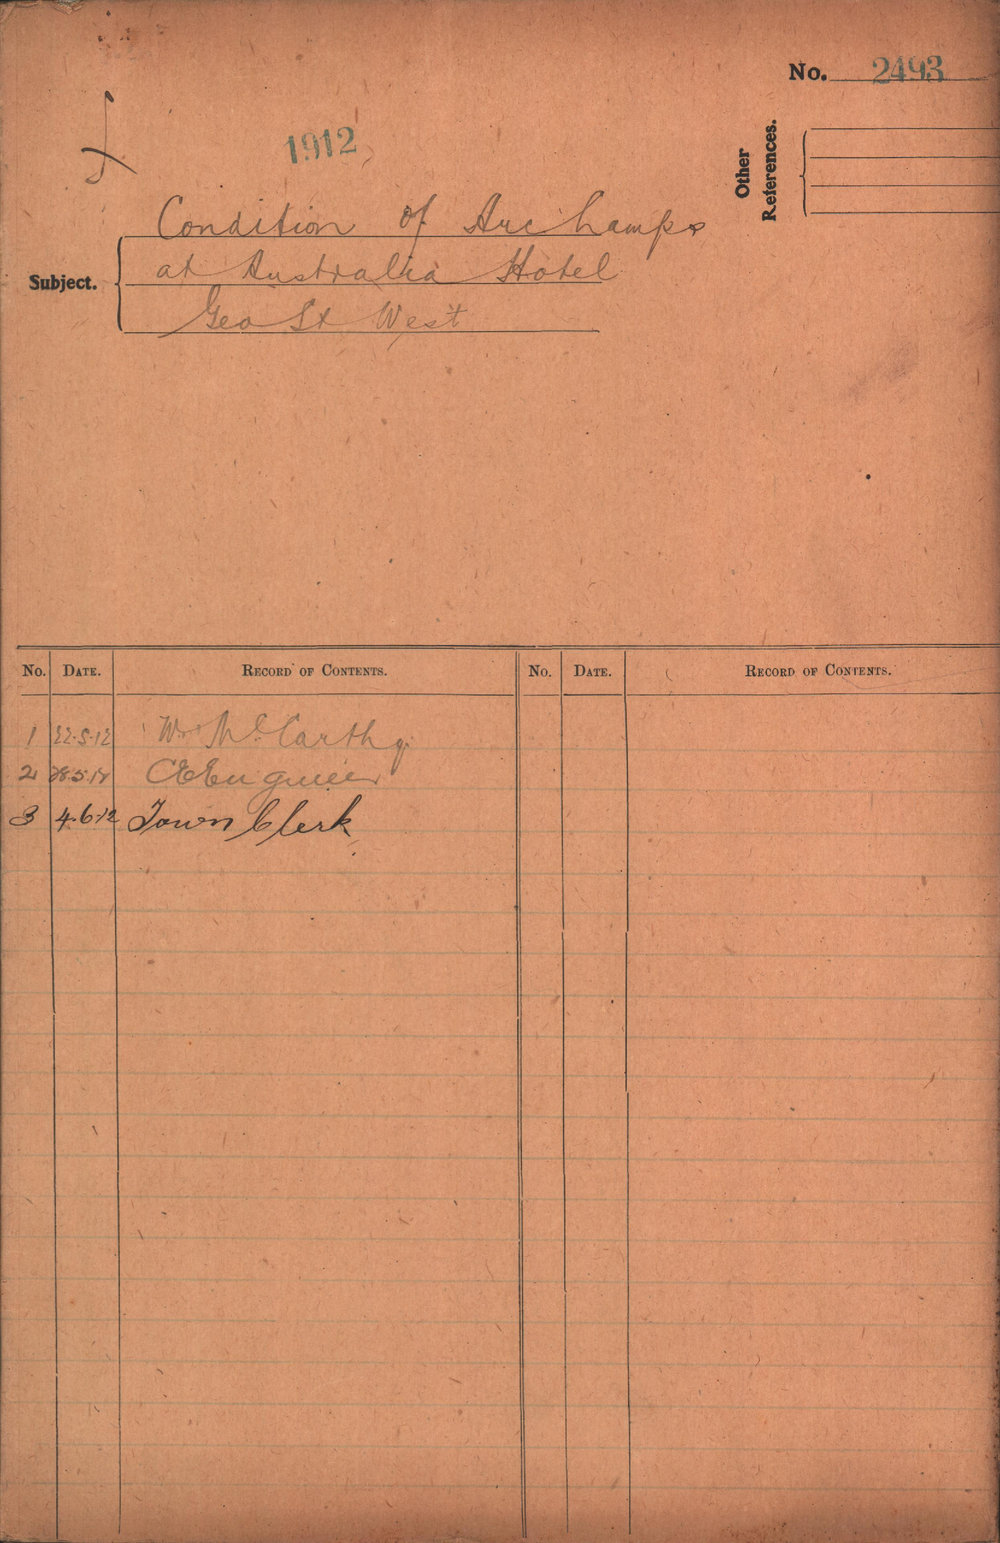 No. 2493
1912
Other References.
Subject.
Condition of Arc Lamps
at Australia Hotel
Geo St West
No. Date. Record of Contents. No. Date. Record of Contents.
1 22.5.12 W. McCarthy
2 28.5.12 CE Engineer
3 4.6.12 Town Clerk